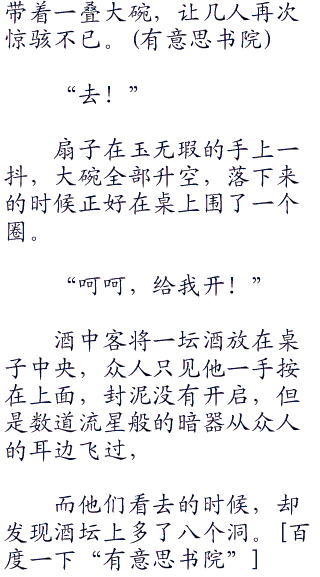 带着一叠大碗，让几人再次
惊骇不已。(有意思书院)
“去！”
扇子在玉无瑕的手上一
抖，大碗全部升空，落下来
的时候正好在桌上围了一个
圈。
“呵呵，给我开！”
酒中客将一坛酒放在桌
子中央，众人只见他一手按
在上面，封泥没有开启，但
是数道流星般的暗器从众人
的耳边飞过，
而他们看去的时候，却
发现酒坛上多了八个洞。[百
度一下“有意思书院”]